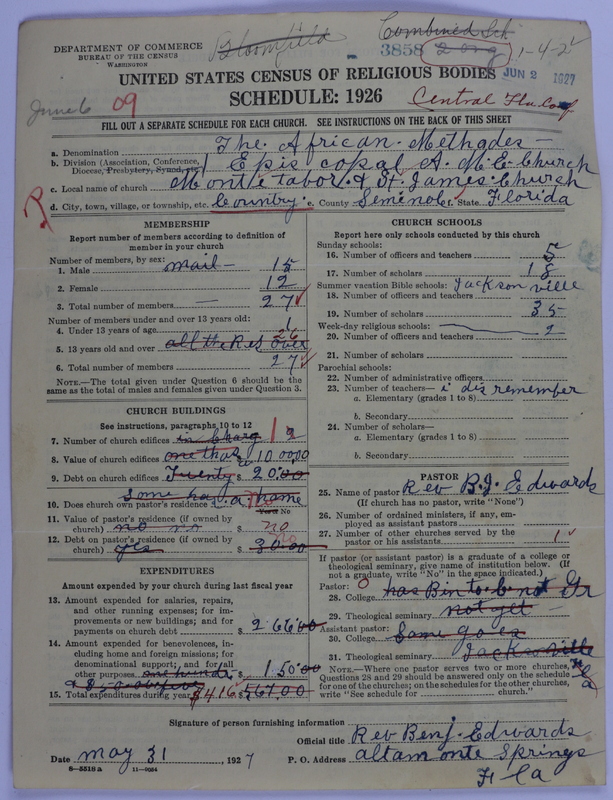 Combined Sch
DEPARTMENT OF COMMERCE
BUREAU OF THE CENSUS
WASHINGTON
Bloomfield
3858
1-4-2
UNITED STATES CENSUS OF RELIGIOUS BODIES
JUN 2 1927
June 6 09
SCHEDULE: 1926
Central Fla. Conf
FILL OUT A SEPARATE SCHEDULE FOR EACH CHURCH. SEE INSTRUCTIONS ON THE BACK OF THIS SHEET
a. Denomination The African Methodes-
b. Division (Association, Conference, Diocese, Presbytery, Synod, etc.) Epis copal A. M. E. Church
c. Local name of church Monte tabor & St James Church
d. City, town, village, or township, etc. Country e. County Seminole f. State Florida
MEMBERSHIP
Report number of members according to definition of
member in your church
Number of members, by sex:
1. Male mail- 15
2. Female 12
3. Total number of members 27
Number of members under and over 13 years old:
4. Under 13 years of age 1
5. 13 years old and over all the Res over 26
6. Total number of members 27
NOTE.—The total given under Question 6 should be the
same as the total of males and females given under Question 3.
CHURCH BUILDINGS
See instructions, paragraphs 10 to 12
7. Number of church edifices in charg 1 2
8. Value of church edifices one thas $ 1000.00
9. Debt on church edifices Twenty $ 20.00
Some has a home
10. Does church own pastor's residence
11. Value of pastor's residence (if owned by
church) no no $ no
12. Debt on pastor's residence (if owned by
church) yes $ 30.00
EXPENDITURES
Amount expended by your church during last fiscal year
13. Amount expended for salaries, repairs,
and other running expenses; for im-
provements or new buildings; and for
payments on church debt $ 266.00
14. Amount expended for benevolences, in-
cluding home and foreign missions; for
denominational support; and for all
other purposes one hunds $ 150.00
15. Total expenditures during year $ 416 561.00
CHURCH SCHOOLS
Report here only schools conducted by this church
Sunday schools:
16. Number of officers and teachers 5
17. Number of scholars 18
Summer vacation Bible schools: Jackson ville
18. Number of officers and teachers
19. Number of scholars 35
Week-day religious schools: 2
20. Number of officers and teachers
21. Number of scholars
Parochial schools:
22. Number of administrative officers
23. Number of teachers— i dis remember
a. Elementary (grades 1 to 8)
b. Secondary
24. Number of scholars—
a. Elementary (grades 1 to 8)
b. Secondary
PASTOR
25. Name of pastor Rev B. J. Edwards
(If church has no pastor, write "None")
26. Number of ordained ministers, if any, em-
ployed as assistant pastors
27. Number of other churches served by the
pastor or his assistants 1
If pastor (or assistant pastor) is a graduate of a college or
theological seminary, give name of institution below. (If
not a graduate, write "No" in the space indicated.)
Pastor: 0
28. College has Bin to b not Gr
29. Theological seminary not yet
Assistant pastor:
30. College Same goes
31. Theological seminary Jacksonville
Fla
NOTE.—Where one pastor serves two or more churches,
Questions 28 and 29 should be answered only on the schedule
for one of the churches; on the schedules for the other churches,
write "See schedule for church."
Signature of person furnishing information
Official title Rev Benj. Edwards
Date may 31, 1927 P. O. Address altamonte Springs
Fla
8-5518a 11-9054